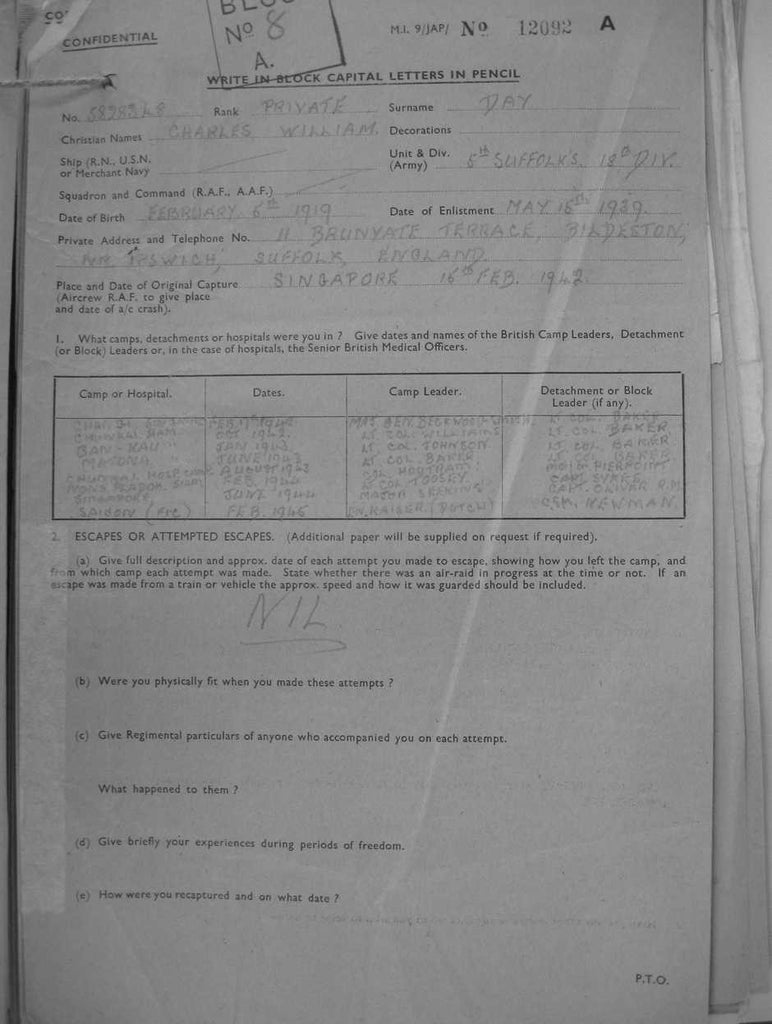 CONFIDENTIAL
BLOC
Nº 8
A.
M.I. 9/JAP/ Nº 12092 A
WRITE IN BLOCK CAPITAL LETTERS IN PENCIL
No. Rank PRIVATE Surname DAY
Christian Names CHARLES WILLIAM. Decorations
Ship (R.N., U.S.N. or Merchant Navy
Unit & Div. (Army) 5th SUFFOLKS, 18th DIV.
Squadron and Command (R.A.F., A.A.F.)
Date of Birth FEBRUARY 6th 1919 Date of Enlistment MAY 16th 1939.
Private Address and Telephone No. 11 BRUNYATE TERRACE, BILDESTON,
NR IPSWICH, SUFFOLK, ENGLAND.
Place and Date of Original Capture SINGAPORE 16th FEB. 1942.
(Aircrew R.A.F. to give place
and date of a/c crash).
1. What camps, detachments or hospitals were you in ? Give dates and names of the British Camp Leaders, Detachment
(or Block) Leaders or, in the case of hospitals, the Senior British Medical Officers.
Camp or Hospital. Dates. Camp Leader. Detachment or Block Leader (if any).
LT. COL. BAKER
OCT 1942. LT. COL. WILLIAMS LT. COL. BAKER
JAN 1943 LT. COL. JOHNSON LT. COL. BAKER
JUNE 1943 LT. COL. BAKER LT. COL. BAKER
AUGUST 1943 PIERPOINT
FEB. 1944 LT COL TOOSEY CAPT.
SINGAPORE JUNE 1944 MAJOR CAPT. OLIVER R.M
SAIGON (FIC) FEB. 1945 KAISER (DUTCH) CSM. NEWMAN.
2. ESCAPES OR ATTEMPTED ESCAPES. (Additional paper will be supplied on request if required).
(a) Give full description and approx. date of each attempt you made to escape, showing how you left the camp, and
from which camp each attempt was made. State whether there was an air-raid in progress at the time or not. If an
escape was made from a train or vehicle the approx. speed and how it was guarded should be included.
NIL
(b) Were you physically fit when you made these attempts ?
(c) Give Regimental particulars of anyone who accompanied you on each attempt.
What happened to them ?
(d) Give briefly your experiences during periods of freedom.
(e) How were you recaptured and on what date ?
P.T.O.